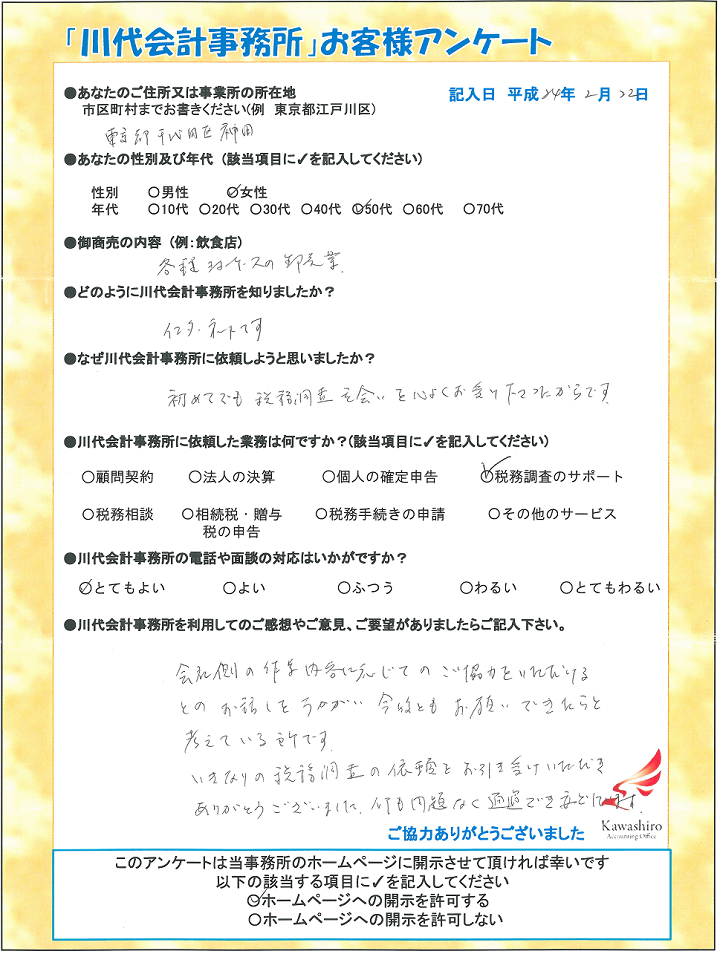 「川代会計事務所」お客様アンケート
●あなたのご住所又は事業所の所在地
記入日 平成24年 2月 22日
市区町村までお書きください(例 東京都江戸川区)
東京都千代田区神田
●あなたの性別及び年代 (該当項目に✓を記入してください)
性別 ○男性 ○女性
年代 ○10代 ○20代 ○30代 ○40代 ○50代 ○60代 ○70代
●御商売の内容 (例:飲食店)
各種 ケースの卸売業
●どのように川代会計事務所を知りましたか?
インターネットです
●なぜ川代会計事務所に依頼しようと思いましたか?
初めてでも 税務調査 立会いを心よくお受け下さったからです。
●川代会計事務所に依頼した業務は何ですか?(該当項目に✓を記入してください)
○顧問契約 ○法人の決算 ○個人の確定申告 ○税務調査のサポート
○税務相談 ○相続税・贈与税の申告 ○税務手続きの申請 ○その他のサービス
●川代会計事務所の電話や面談の対応はいかがですか?
○とてもよい ○よい ○ふつう ○わるい ○とてもわるい
●川代会計事務所を利用してのご感想やご意見、ご要望がありましたらご記入下さい。
会社側の作業内容に応じてのご協力をいただける
とのお話しをうかがい 今後ともお願いできたらと
考えている所です。
いきなりの税務調査の依頼をお引き受けいただき
ありがとうございました。何も問題なく通過でき
Kawashiro
Accounting Office
ご協力ありがとうございました
このアンケートは当事務所のホームページに開示させて頂ければ幸いです
以下の該当する項目に✓を記入してください
○ホームページへの開示を許可する
○ホームページへの開示を許可しない